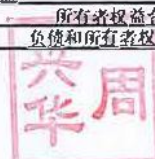 所有者权益合
负债和所有者权
周兴华